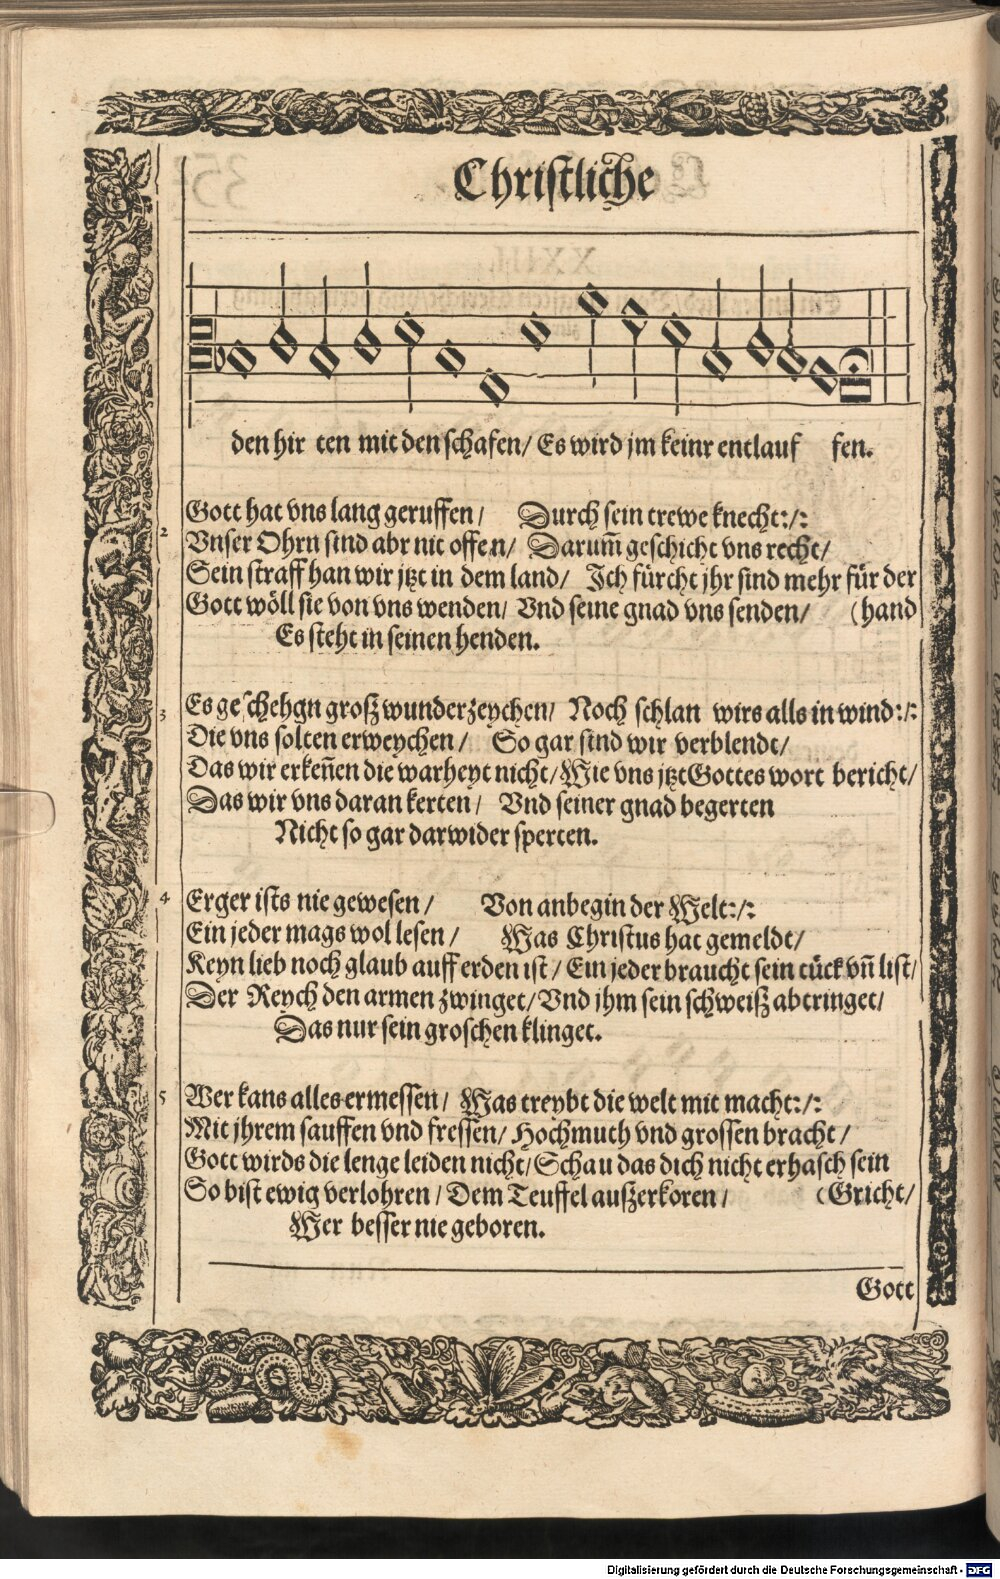 Christliche
den hir ten mit den schafen/ Es wird jm keinr entlauf fen.
Gott hat vns lang geruffen/ Durch sein trewe knecht:/:
2 Vnser Ohrn sind abr nit offen/ Darum̃ geschicht vns recht/
Sein straff han wir jtzt in dem land/ Ich fürcht jhr sind mehr für der
Gott wöll sie von vns wenden/ Vnd seine gnad vns senden/ (hand
Es steht in seinen henden.
3 Es geschehgn groß wunderzeychen/ Noch schlan wirs alls in wind:/:
Die vns solten erweychen/ So gar sind wir verblendt/
Das wir erkeñen die warheyt nicht/ Wie vns jtzt Gottes wort bericht/
Das wir vns daran kerten/ Vnd seiner gnad begerten
Nicht so gar darwider sperten.
4 Erger ists nie gewesen/ Von anbegin der Welt:/:
Ein jeder mags wol lesen/ Was Christus hat gemeldt/
Keyn lieb noch glaub auff erden ist/ Ein jeder braucht sein tück vñ list/
Der Reych den armen zwinget/ Vnd jhm sein schweiß abtringet/
Das nur sein groschen klinget.
5 Wer kans alles ermessen/ Was treybt die welt mit macht:/:
Mit jhrem sauffen vnd fressen/ Hochmuth vnd grossen bracht/
Gott wirds die lenge leiden nicht/ Schau das dich nicht erhasch sein
So bist ewig verlohren/ Dem Teuffel außerkoren/ (Gricht/
Wer besser nie geboren.
Gott
Digitalisierung gefördert durch die Deutsche Forschungsgemeinschaft - DFG